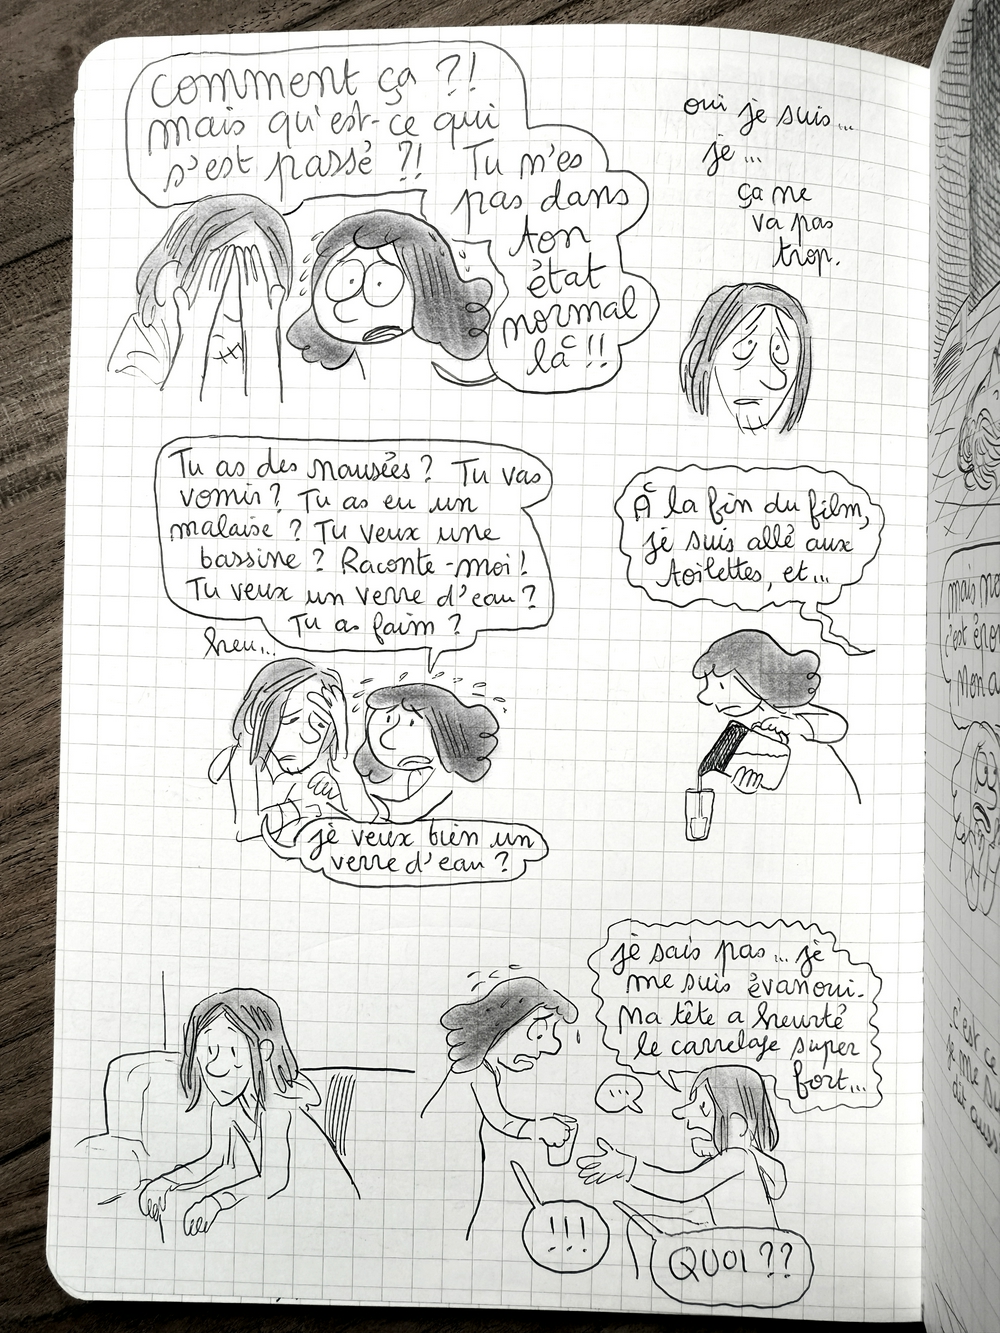 comment ça ?!
mais qu'est-ce qui
s'est passé ?!
Tu m'es
pas dans
ton
état
normal
là !!
oui je suis...
je...
ça ne
va pas
trop.
Tu as des nausées ? Tu vas
vomir ? Tu as eu un
malaise ? Tu veux une
bassine ? Raconte-moi !
Tu veux un verre d'eau ?
Tu as faim ?
heu...
je veux bien un
verre d'eau ?
À la fin du film,
je suis allé aux
toilettes, et...
je sais pas... je
me suis évanoui.
Ma tête a heurté
le carrelage super
fort...
...
!!!
...
QUOI ??
mais
c'est
mon
c'est ce
je me
dit aussi